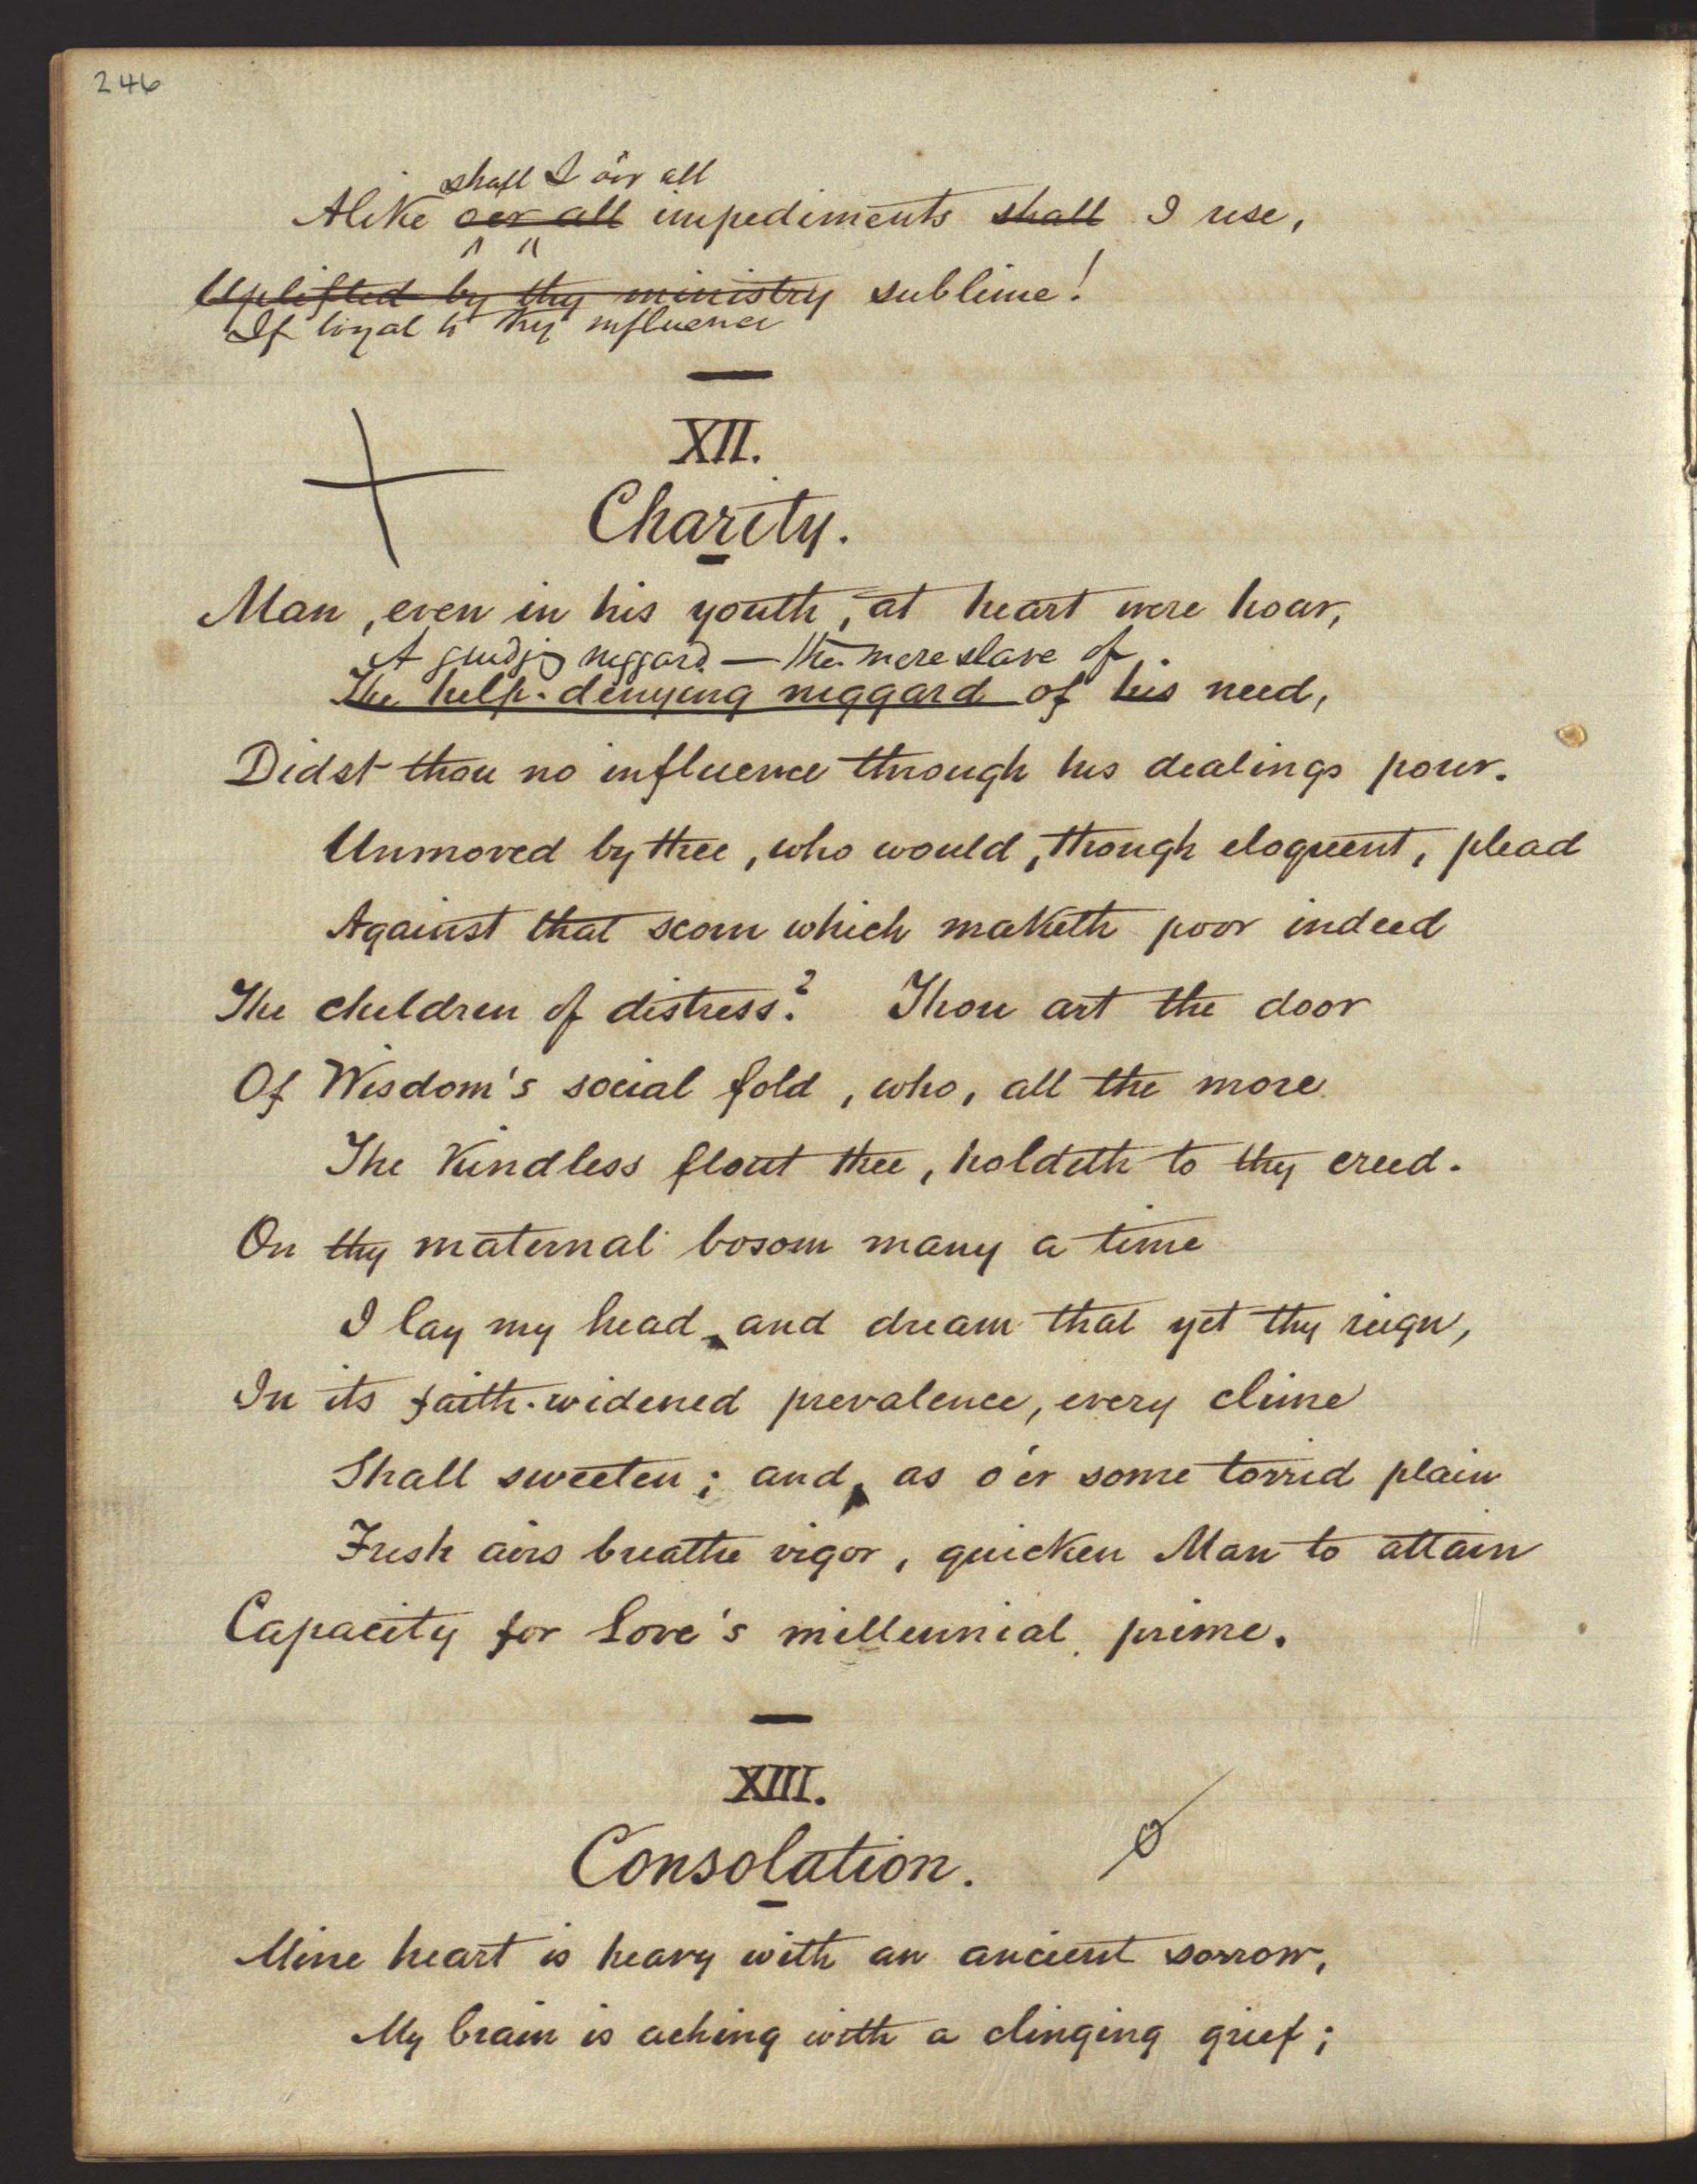 246
shall I o'er all
Alike o'er all impediments shall I rise,
Uplifted by thy ministry sublime!
If loyal to thy influence
XII.
Charity.
Man, even in his youth, at heart were hoar,
A grudging niggard — the mere slave of
The help-denying niggard of his need,
Didst thou no influence through his dealings pour.
Unmoved by thee, who would, though eloquent, plead
Against that scorn which maketh poor indeed
The children of distress? Thou art the door
Of Wisdom's social fold, who, all the more
The kindless flout thee, holdeth to thy creed.
On thy maternal bosom many a time
I lay my head, and dream that yet thy reign,
In its faith-widened prevalence, every clime
Shall sweeten; and, as o'er some torrid plain
Fresh airs breathe vigor, quicken Man to attain
Capacity for Love's millennial prime.
XIII.
Consolation.
Mine heart is heavy with an ancient sorrow,
My brain is aching with a clinging grief;